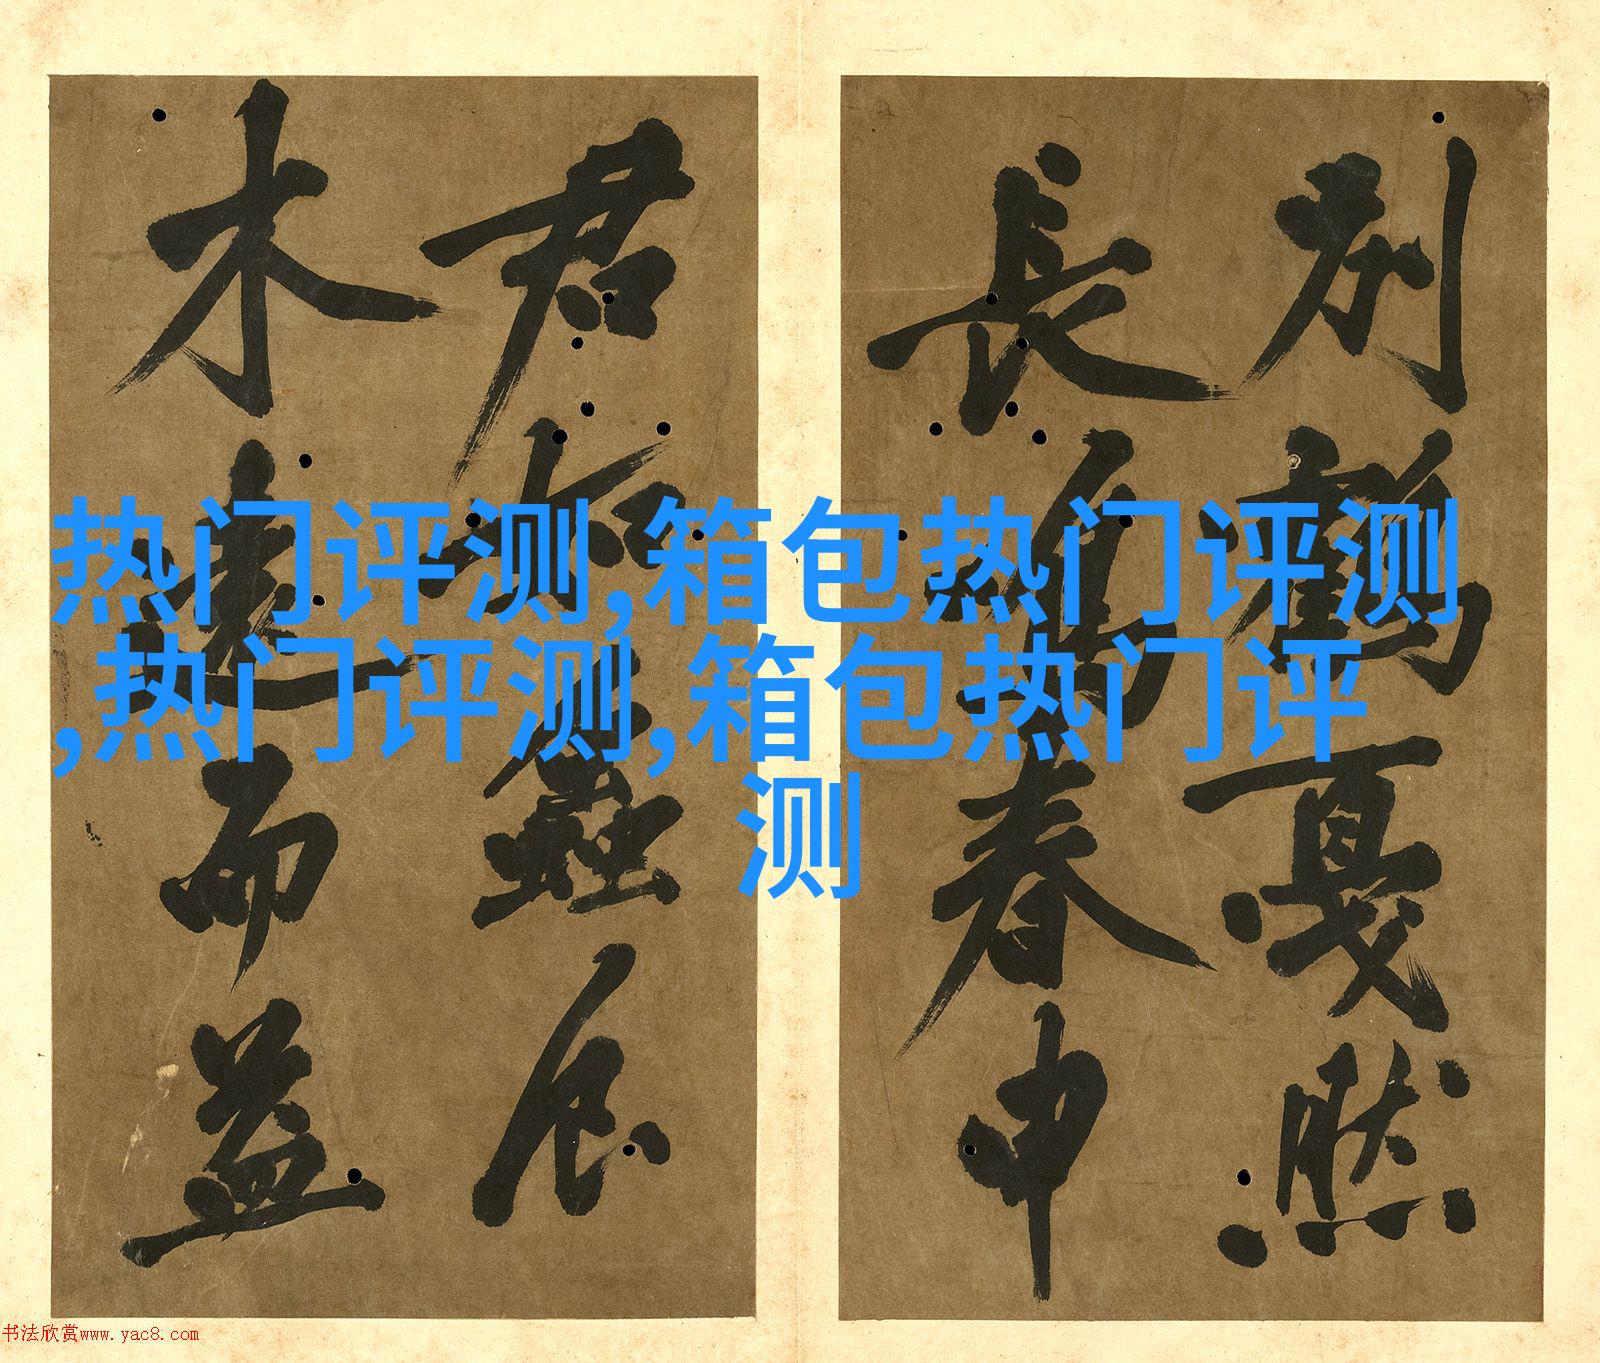 别鹤戛然
長鳥春申
君
木遠而益
热门评测,箱包热门评测
,热门评测,箱包热门评
测
书法欣赏www.yac8.com